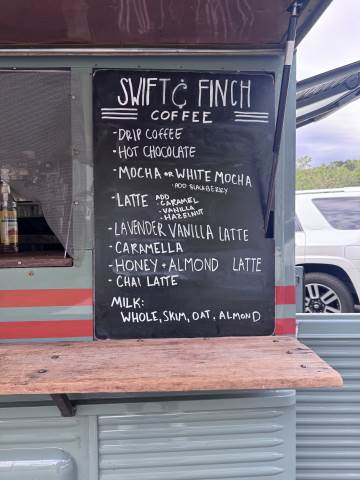 SWIFT & FINCH
COFFEE
-DRIP COFFEE
-HOT CHOCOLATE
-MOCHA OR WHITE MOCHA
-ADD BLACKBERRY
-LATTE ADD
-CARAMEL
-VANILLA
-HAZELNUT
-LAVENDER VANILLA LATTE
-CARAMELLA
-HONEY + ALMOND LATTE
-CHAI LATTE
MILK:
WHOLE, SKIM, OAT, ALMOND